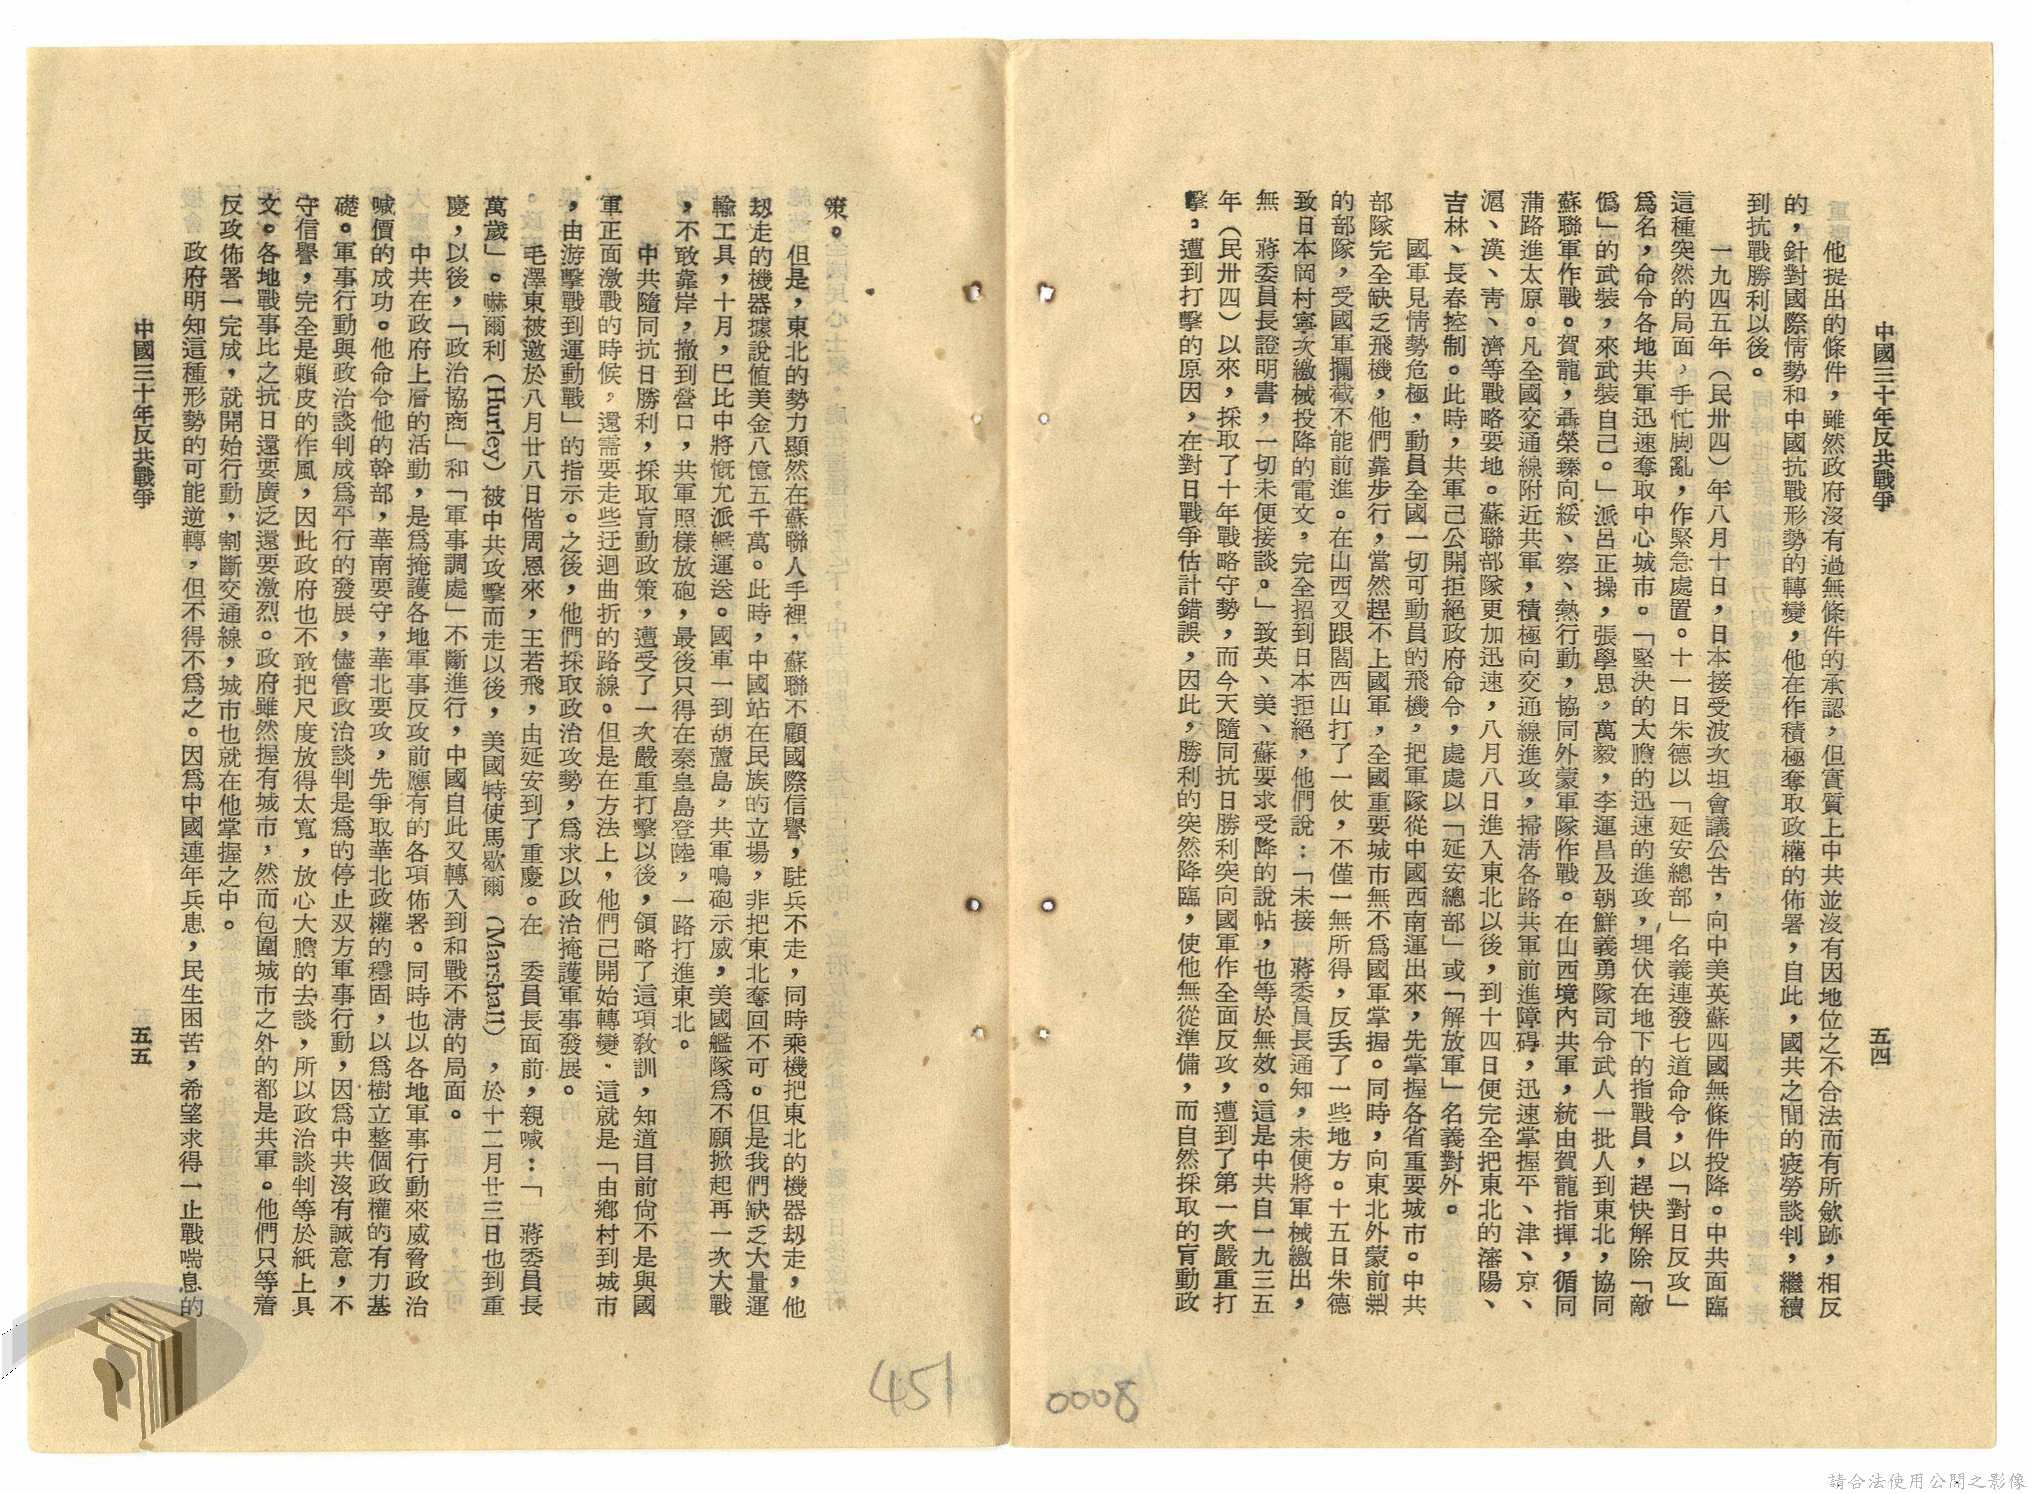 中國三十年反共戰爭
五四
他提出的條件，雖然政府沒有過無條件的承認，但實質上中共並沒有因地位之不合法而有所歛跡，相反
的，針對國際情勢和中國抗戰形勢的轉變，他在作積極奪取政權的佈署，自此，國共之間的疲勞談判，繼續
到抗戰勝利以後。
一九四五年（民卅四）年八月十日，日本接受波次坦會議公告，向中美英蘇四國無條件投降。中共面臨
這種突然的局面，手忙脚亂，作緊急處置。十一日朱德以「延安總部」名義連發七道命令，以「對日反攻」
爲名，命令各地共軍迅速奪取中心城市。「堅決的大膽的迅速的進攻，埋伏在地下的指戰員，趕快解除「敵
僞」的武裝，來武裝自己。」派呂正操，張學思，萬毅，李運昌及朝鮮義勇隊司令武人一批人到東北，協同
蘇聯軍作戰。賀龍，聶榮臻向綏、察、熱行動，協同外蒙軍隊作戰。在山西境內共軍，統由賀龍指揮，循同
蒲路進太原。凡全國交通線附近共軍，積極向交通線進攻，掃清各路共軍前進障碍，迅速掌握平、津、京、
滬、漢、靑、濟等戰略要地。蘇聯部隊更加迅速，八月八日進入東北以後，到十四日便完全把東北的瀋陽、
吉林、長春控制。此時，共軍己公開拒絕政府命令，處處以「延安總部」或「解放軍」名義對外。
國軍見情勢危極，動員全國一切可動員的飛機，把軍隊從中國西南運出來，先掌握各省重要城市。中共
部隊完全缺乏飛機，他們靠步行，當然趕不上國軍，全國重要城市無不爲國軍掌握。同時，向東北外蒙前進
的部隊，受國軍攔截不能前進。在山西又跟閻西山打了一仗，不僅一無所得，反丟了一些地方。十五日朱德
致日本岡村寧次繳械投降的電文，完全招到日本拒絕，他們說：「未接　蔣委員長通知，未便將軍械繳出，
無　蔣委員長證明書，一切未便接談。」致英、美、蘇要求受降的說帖，也等於無效。這是中共自一九三五
年（民卅四）以來，採取了十年戰略守勢，而今天隨同抗日勝利突向國軍作全面反攻，遭到了第一次嚴重打
擊。遭到打擊的原因，在對日戰爭估計錯誤，因此，勝利的突然降臨，使他無從準備，而自然採取的盲動政
0008
策。
但是，東北的勢力顯然在蘇聯人手裡，蘇聯不顧國際信譽，駐兵不走，同時乘機把東北的機器刼走，他
刼走的機器據說值美金八億五千萬。此時，中國站在民族的立場，非把東北奪回不可。但是我們缺乏大量運
輸工具，十月，巴比中將慨允派艦運送。國軍一到胡蘆島，共軍鳴砲示威，美國艦隊爲不願掀起再一次大戰
，不敢靠岸，撤到營口，共軍照樣放砲，最後只得在秦皇島登陸，一路打進東北。
中共隨同抗日勝利，採取盲動政策，遭受了一次嚴重打擊以後，領略了這項敎訓，知道目前尙不是與國
軍正面激戰的時候，還需要走些迂迴曲折的路線。但是在方法上，他們己開始轉變．這就是「由鄉村到城市
，由游擊戰到運動戰」的指示。之後，他們採取政治攻勢，爲求以政治掩護軍事發展。
毛澤東被邀於八月廿八日偕周恩來，王若飛，由延安到了重慶。在　委員長面前，親喊：「　蔣委員長
萬歲」。嚇爾利（Hurley）被中共攻擊而走以後，美國特使馬歇爾（Marshall），於十二月廿三日也到重
慶，以後，「政治協商」和「軍事調處」不斷進行，中國自此又轉入到和戰不淸的局面。
中共在政府上層的活動，是爲掩護各地軍事反攻前應有的各項佈署。同時也以各地軍事行動來威脅政治
喊價的成功。他命令他的幹部，華南要守，華北要攻，先爭取華北政權的穩固，以爲樹立整個政權的有力基
礎。軍事行動與政治談判成爲平行的發展，儘管政治談判是爲的停止双方軍事行動，因爲中共沒有誠意，不
守信譽，完全是賴皮的作風，因此政府也不敢把尺度放得太寬，放心大膽的去談，所以政治談判等於紙上具
文。各地戰事比之抗日還要廣泛還要激烈。政府雖然握有城市，然而包圍城市之外的都是共軍。他們只等着
反攻佈署一完成，就開始行動，割斷交通線，城市也就在他掌握之中。
政府明知這種形勢的可能逆轉，但不得不爲之。因爲中國連年兵患，民生困苦，希望求得一止戰喘息的
中國三十年反共戰爭
五五
451
請合法使用公開之影像